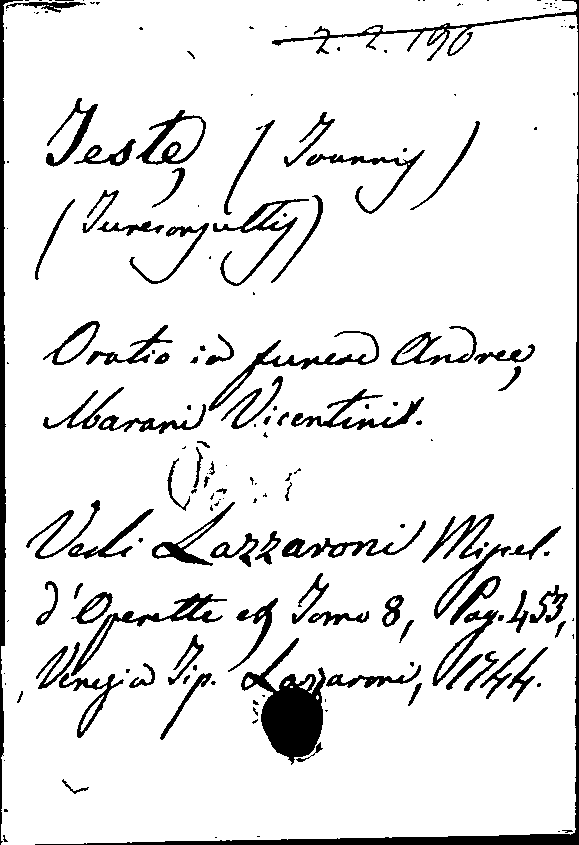 2. 2. 190
Teste, (Joannis)
(Jureconsultis)
Oratio in funere Andree,
Marani Vicentinis.
Vedi Lazzaroni Miscel.
d'Operette ec Tomo 8, Pag. 453,
Venezia Tip. Lazzaroni, 1744.